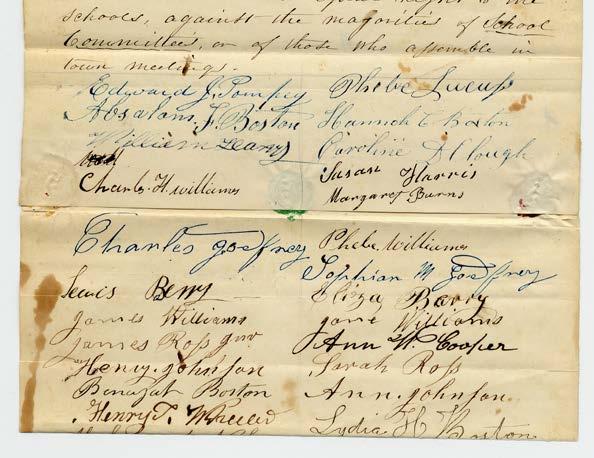 schools, against the majorities of School
Committees, or of those who assemble in
town meetings.
Edward J. Pompey Phebe Lucus
Absalom F. Boston Hannah C Boston
William Harris Caroline A Clough
Susan Harris
Charls. H. williams Margaret Burns
Charles Godfrey Phebe. Williams
Sophian M Godfrey
Lewis Berry Eliza Barry
James Williams jane Williams
james Ross jnr Ann W. Cooper
Henry. johnson Sarah Ross
Benajah Boston Ann. johnson
Henry T. Wheeler Lydia H Boston